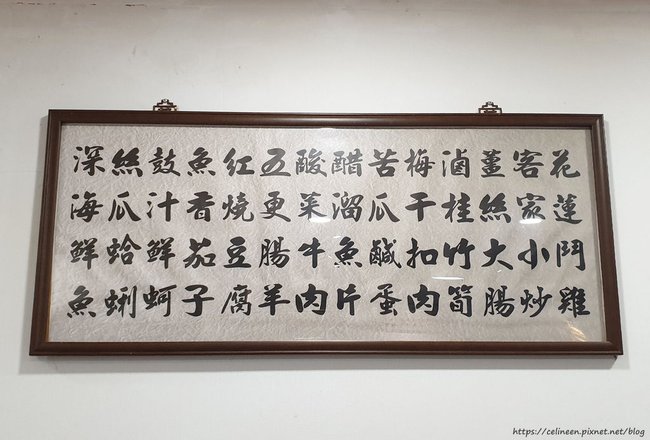 花蓮鬥雞
客家小炒
薑絲大腸
滷桂竹筍
梅干扣肉
苦瓜鹹蛋
醋溜魚片
酸菜牛肉
五更腸羊
紅燒豆腐
魚香茄子
鼓汁鮮蚵
絲瓜蛤蜊
深海鮮魚
https://celineen.pixnet.net/blog